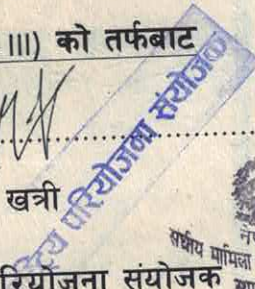 III) को तर्फबाट
खत्री
परियोजना संयोजक
रियोजना संयोजक
संघीय मामिला